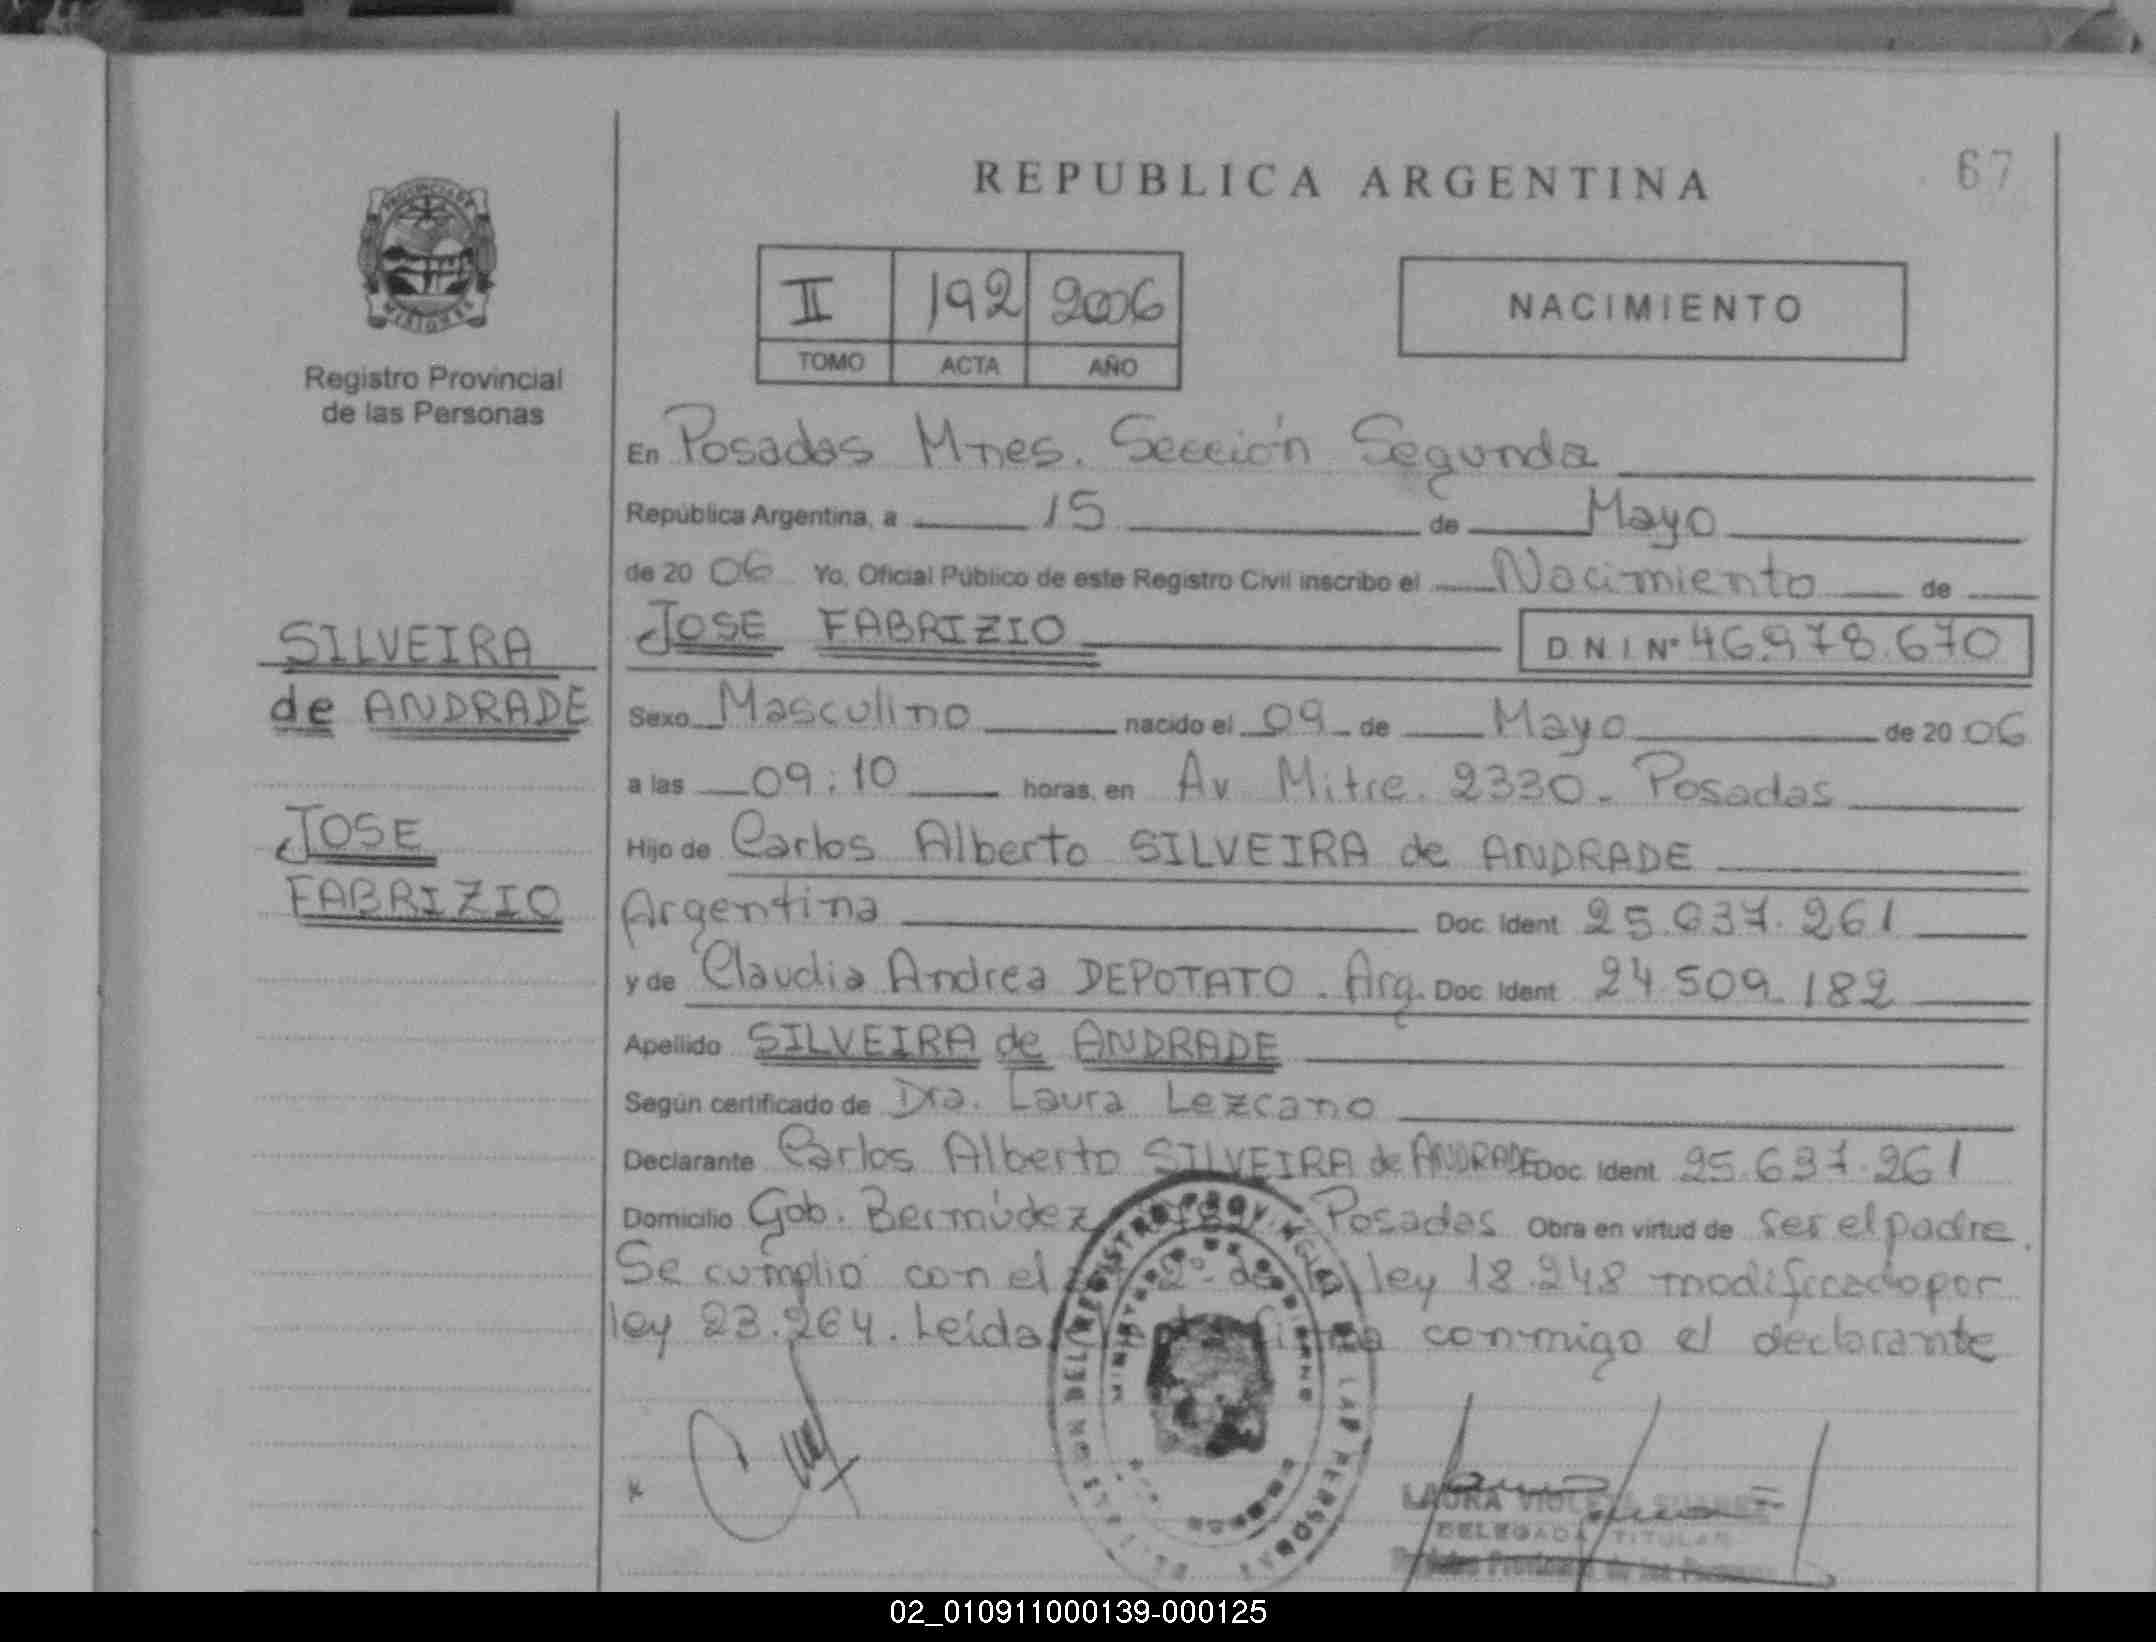 REPUBLICA ARGENTINA
67
PROVINCIA DE
MISIONES
Registro Provincial
de las Personas
II 192 2006
TOMO ACTA AÑO
NACIMIENTO
SILVEIRA
de ANDRADE
JOSE
FABRIZIO
En Posadas Mnes. Sección Segunda
República Argentina, a 15 de Mayo
de 20 06 Yo, Oficial Público de este Registro Civil inscribo el Nacimiento de
JOSE FABRIZIO D.N.I Nº 46.978.670
Sexo Masculino nacido el 09 de Mayo de 20 06
a las 09:10 horas, en Av. Mitre. 2330. Posadas
Hijo de Carlos Alberto SILVEIRA de ANDRADE
Argentina Doc. Ident 25.637.261
y de Claudia Andrea DEPOTATO. Arg. Doc. Ident 24.509.182
Apellido SILVEIRA de ANDRADE
Según certificado de Dra. Laura Lezcano
Declarante Carlos Alberto SILVEIRA de ANDRADE Doc. Ident. 25.637.261
Domicilio Gob. Bermúdez Posadas Obra en virtud de ser el padre.
Se cumplió con el 2º de la ley 18.248 modificado por
ley 23.264. Leída firma conmigo el declarante
LAURA VIOLETA SUAREZ
DELEGADA TITULAR
Registro Provincial de las Personas
02_010911000139-000125